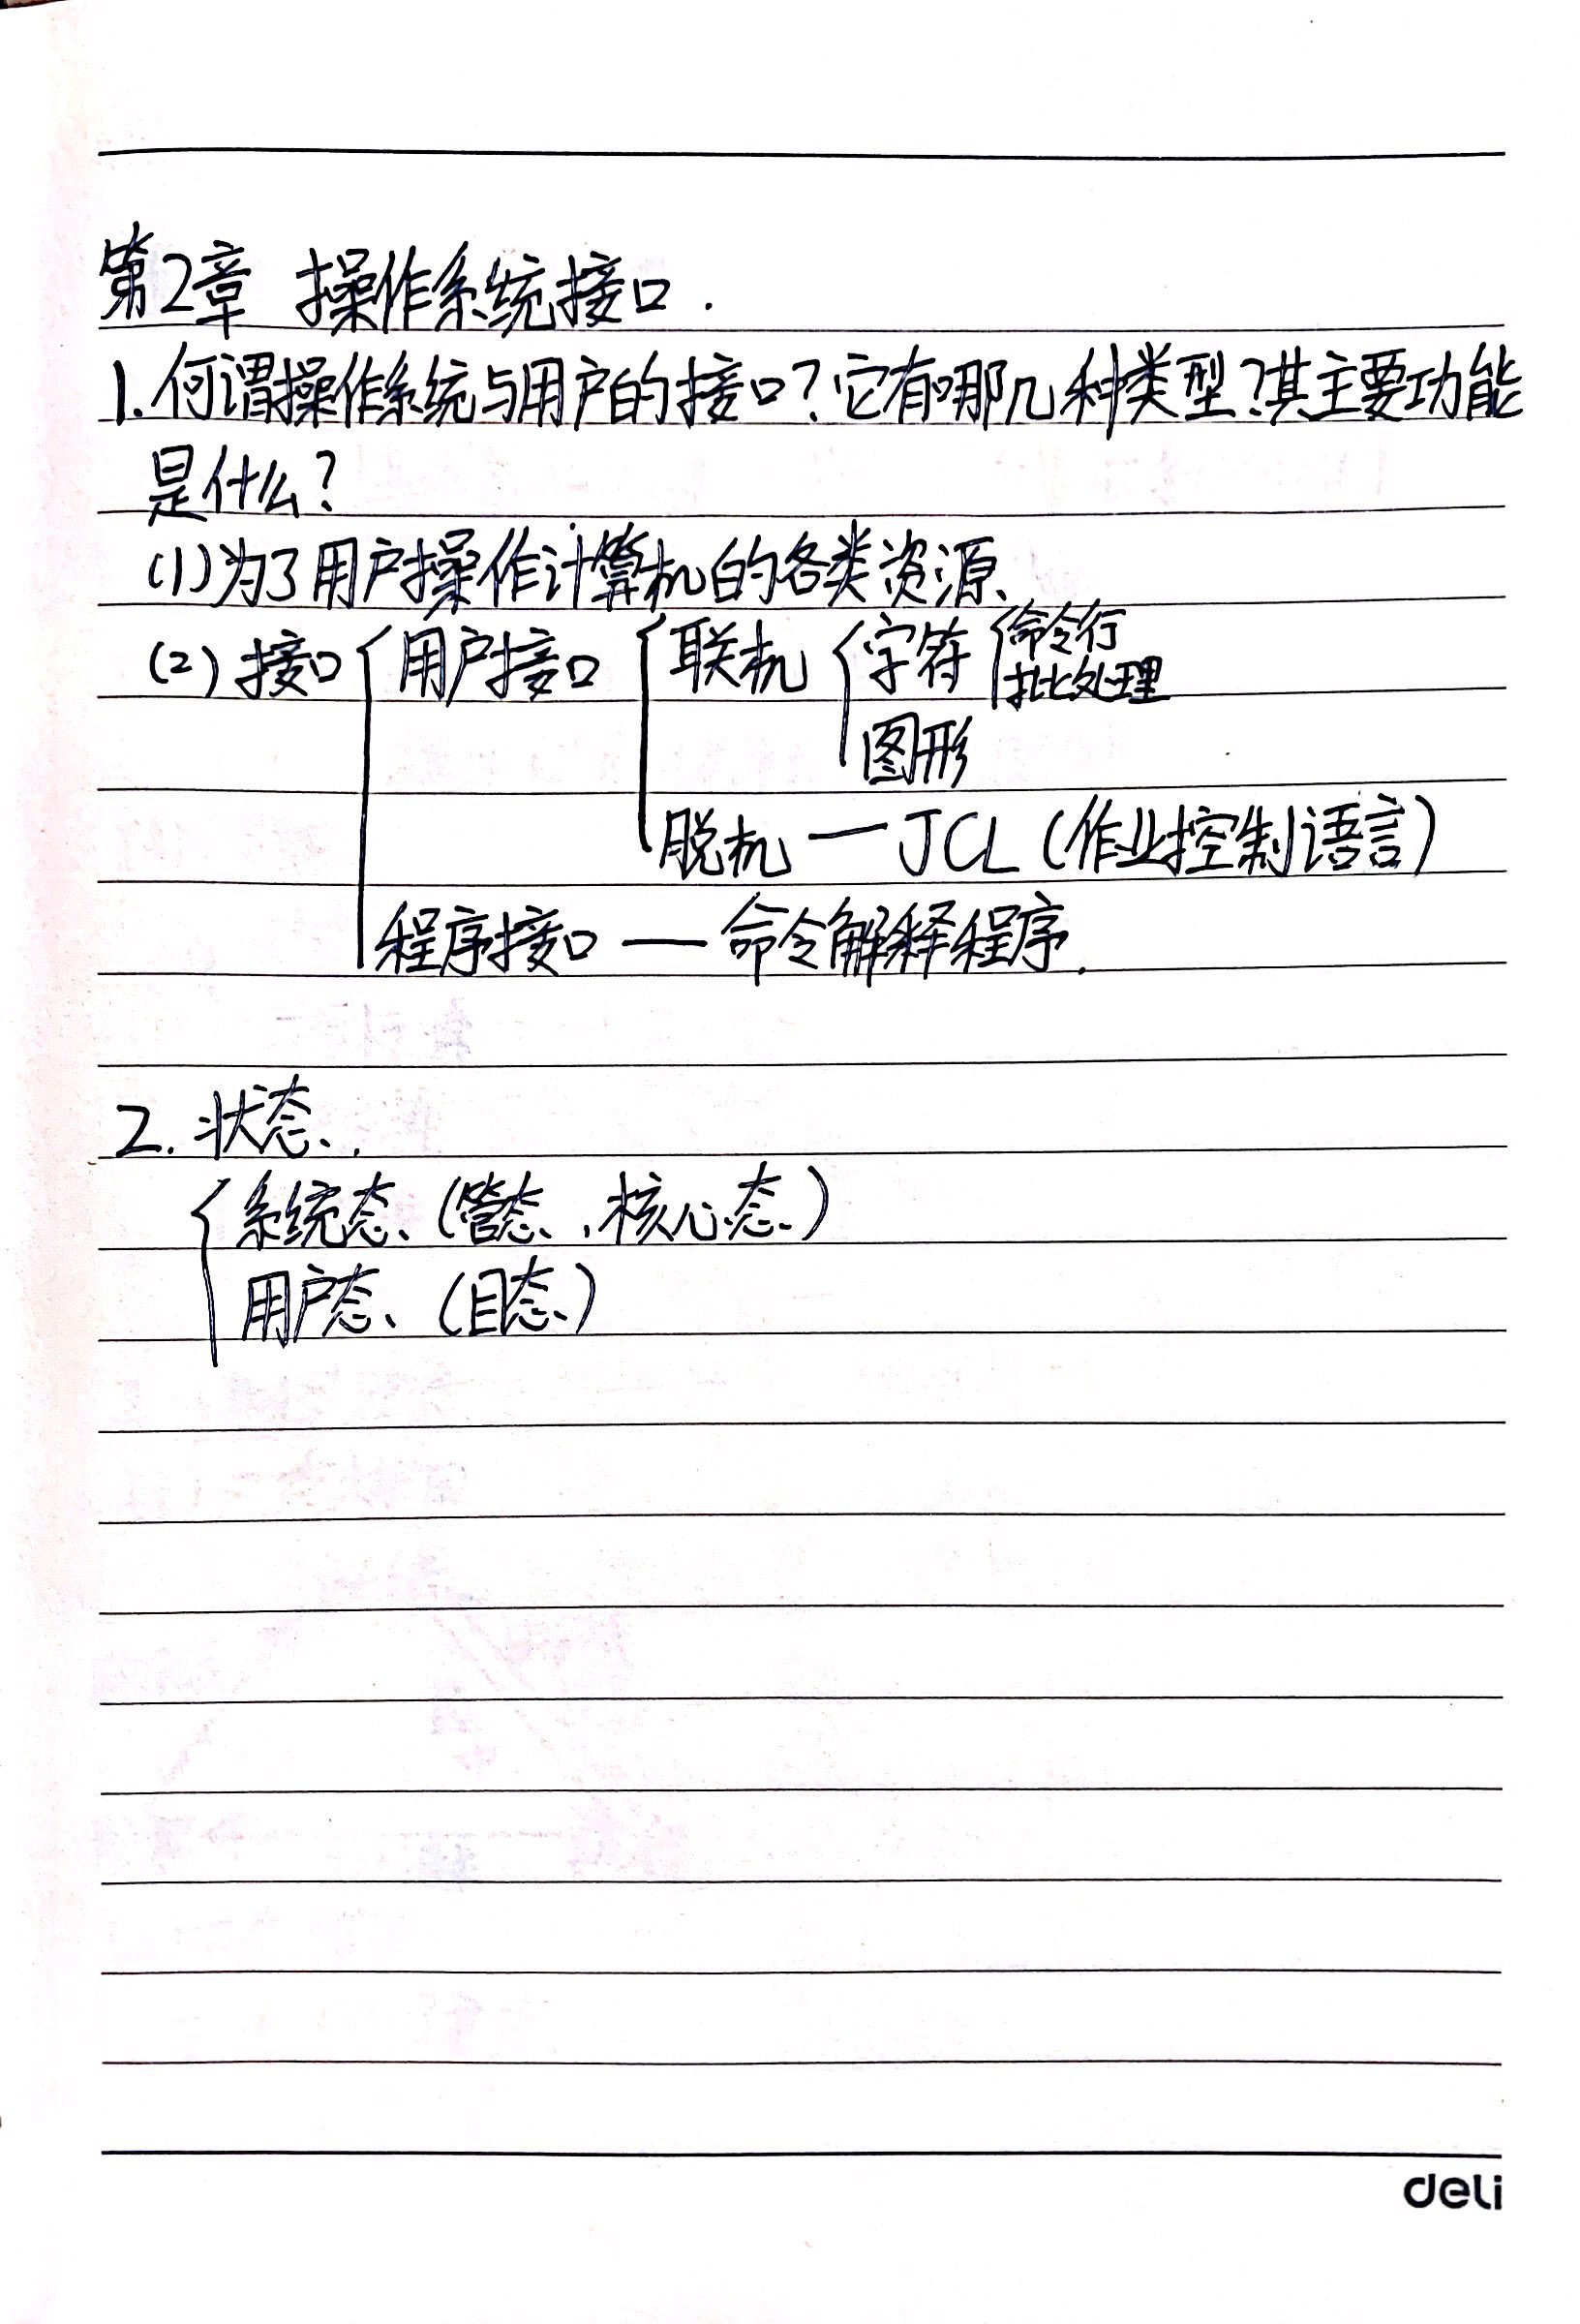 第2章 操作系统接口.
1.何谓操作系统与用户的接口?它有哪几种类型?其主要功能
是什么?
(1)为了用户操作计算机的各类资源、
(2)接口 { 用户接口 { 联机 { 字符 { 命令行
批处理
图形
脱机 — JCL (作业控制语言)
程序接口 — 命令解释程序.
2. 状态.
{ 系统态 (管态, 核心态)
用户态 (目态)
deli